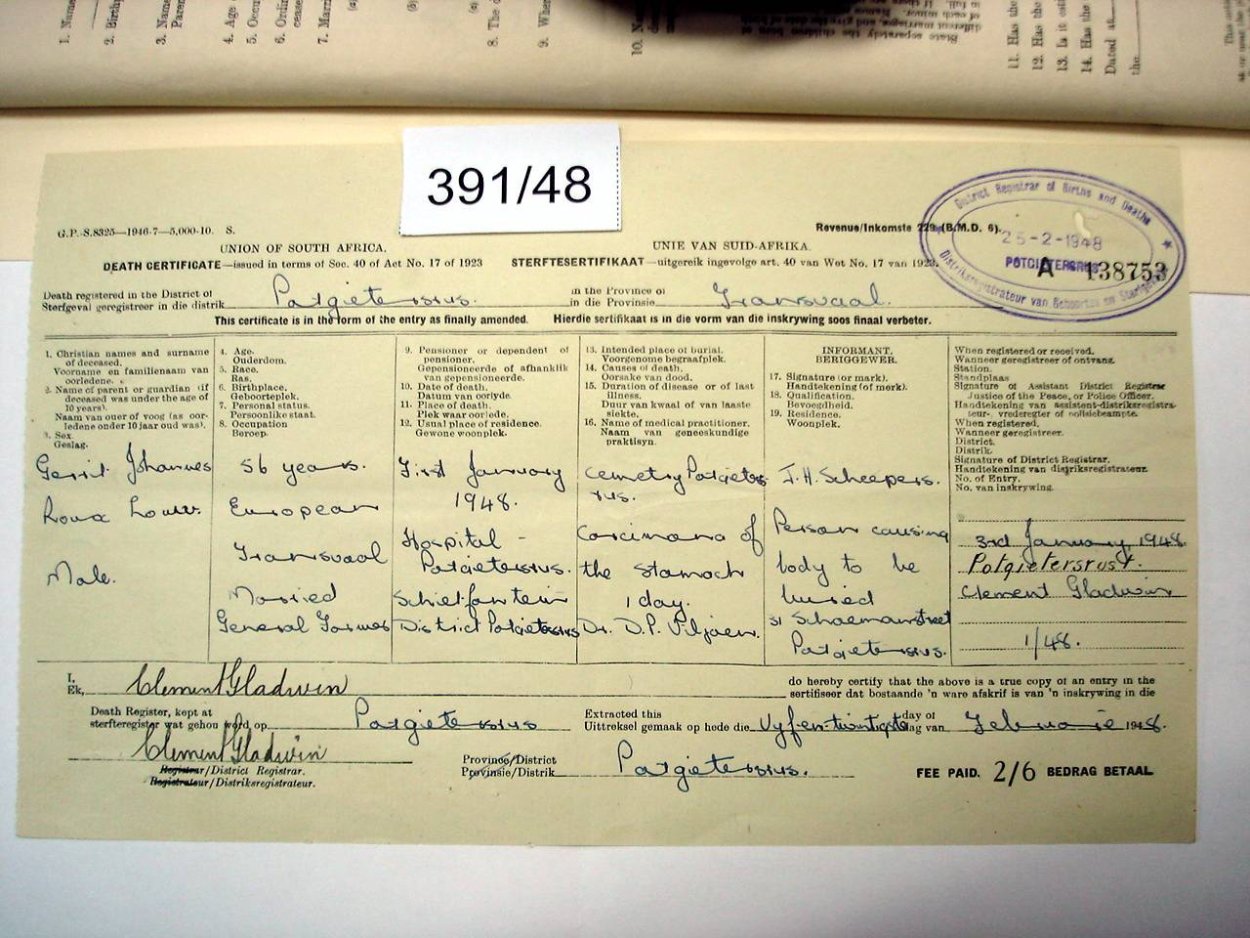 1. Name
2. Birthp
3. Nam
Paren
4. Age
5. Occu
6. Ordin
cease
7. Marri
(a)
(b)
(c)
8. The d
9. When
10. N
11. Has the
12. Has the
13. Is it
14. Has the
Dated at
the
391/48
G.P.-S.8325—1946-7—5,000-10. S.
Revenue/Inkomste 229 (B.M.D. 6).
District Registrar of Births and Deaths
25-2-1948
POTGIETERSRUS
A 138753
Distriksregistrateur van Geboortes en Sterfgevalle
UNION OF SOUTH AFRICA.
UNIE VAN SUID-AFRIKA.
DEATH CERTIFICATE—issued in terms of Sec. 40 of Act No. 17 of 1923
STERFTESERTIFIKAAT—uitgereik ingevolge art. 40 van Wet No. 17 van 1923.
Death registered in the District of
Sterfgeval geregistreer in die distrik
Potgietersrus.
in the Province of
in die Provinsie
Transvaal.
This certificate is in the form of the entry as finally amended.
Hierdie sertifikaat is in die vorm van die inskrywing soos finaal verbeter.
1. Christian names and surname
of deceased.
Voorname en familienaam van
oorledene.
2. Name of parent or guardian (if
deceased was under the age of
10 years).
Naam van ouer of voog (as oor-
ledene onder 10 jaar oud was).
3. Sex.
Geslag.
Gerrit Johannes
Roux Louw.
Male.
4. Age.
Ouderdom.
5. Race.
Ras.
6. Birthplace.
Geboorteplek.
7. Personal status.
Persoonlike staat.
8. Occupation
Beroep.
56 years.
European
Transvaal
Married
General Farmer
9. Pensioner or dependent of
pensioner.
Gepensioneerde of afhanklik
van gepensioneerde.
10. Date of death.
Datum van oorlyde.
11. Place of death.
Plek waar oorlede.
12. Usual place of residence.
Gewone woonplek.
First January
1948.
Hospital -
Potgietersrus.
Schielfontein
District Potgietersrus
13. Intended place of burial.
Voorgenome begraafplek.
14. Causes of death.
Oorsake van dood.
15. Duration of disease or of last
illness.
Duur van kwaal of van laaste
siekte.
16. Name of medical practitioner.
Naam van geneeskundige
praktisyn.
Cemetry Potgieters
rus.
Carcinoma of
the Stomach
1 day.
Dr. D.P. Viljoen.
INFORMANT.
BERIGGEWER.
17. Signature (or mark).
Handtekening (of merk).
18. Qualification.
Bevoegdheid.
19. Residence.
Woonplek.
J.H. Scheepers.
Person causing
body to be
buried
51 Schoemanstreet
Potgietersrus.
When registered or received.
Wanneer geregistreer of ontvang.
Station.
Standplaas
Signature of Assistant District Registrar
Justice of the Peace, or Police Officer.
Handtekening van assistent-distriksregistra-
teur- vrederegter of polisiebeampte.
When registered.
Wanneer geregistreer.
District.
Distrik.
Signature of District Registrar.
Handtekening van distriksregistrateur.
No. of Entry.
No. van inskrywing.
3rd January 1948
Potgietersrust.
Clement Gladwin
1/48.
I,
Ek,
Clement Gladwin
do hereby certify that the above is a true copy of an entry in the
sertifiseer dat bostaande 'n ware afskrif is van 'n inskrywing in die
Death Register, kept at
sterfteregister wat gehou word op
Potgietersrus
Extracted this
Uittreksel gemaak op hede die
Vyfentwintigste
day of
dag van
Februarie 1948.
Clement Gladwin
Registrar/District Registrar.
Registrateur/Distriksregistrateur.
Province/District
Provinsie/Distrik
Potgietersrus.
FEE PAID. 2/6 BEDRAG BETAAL